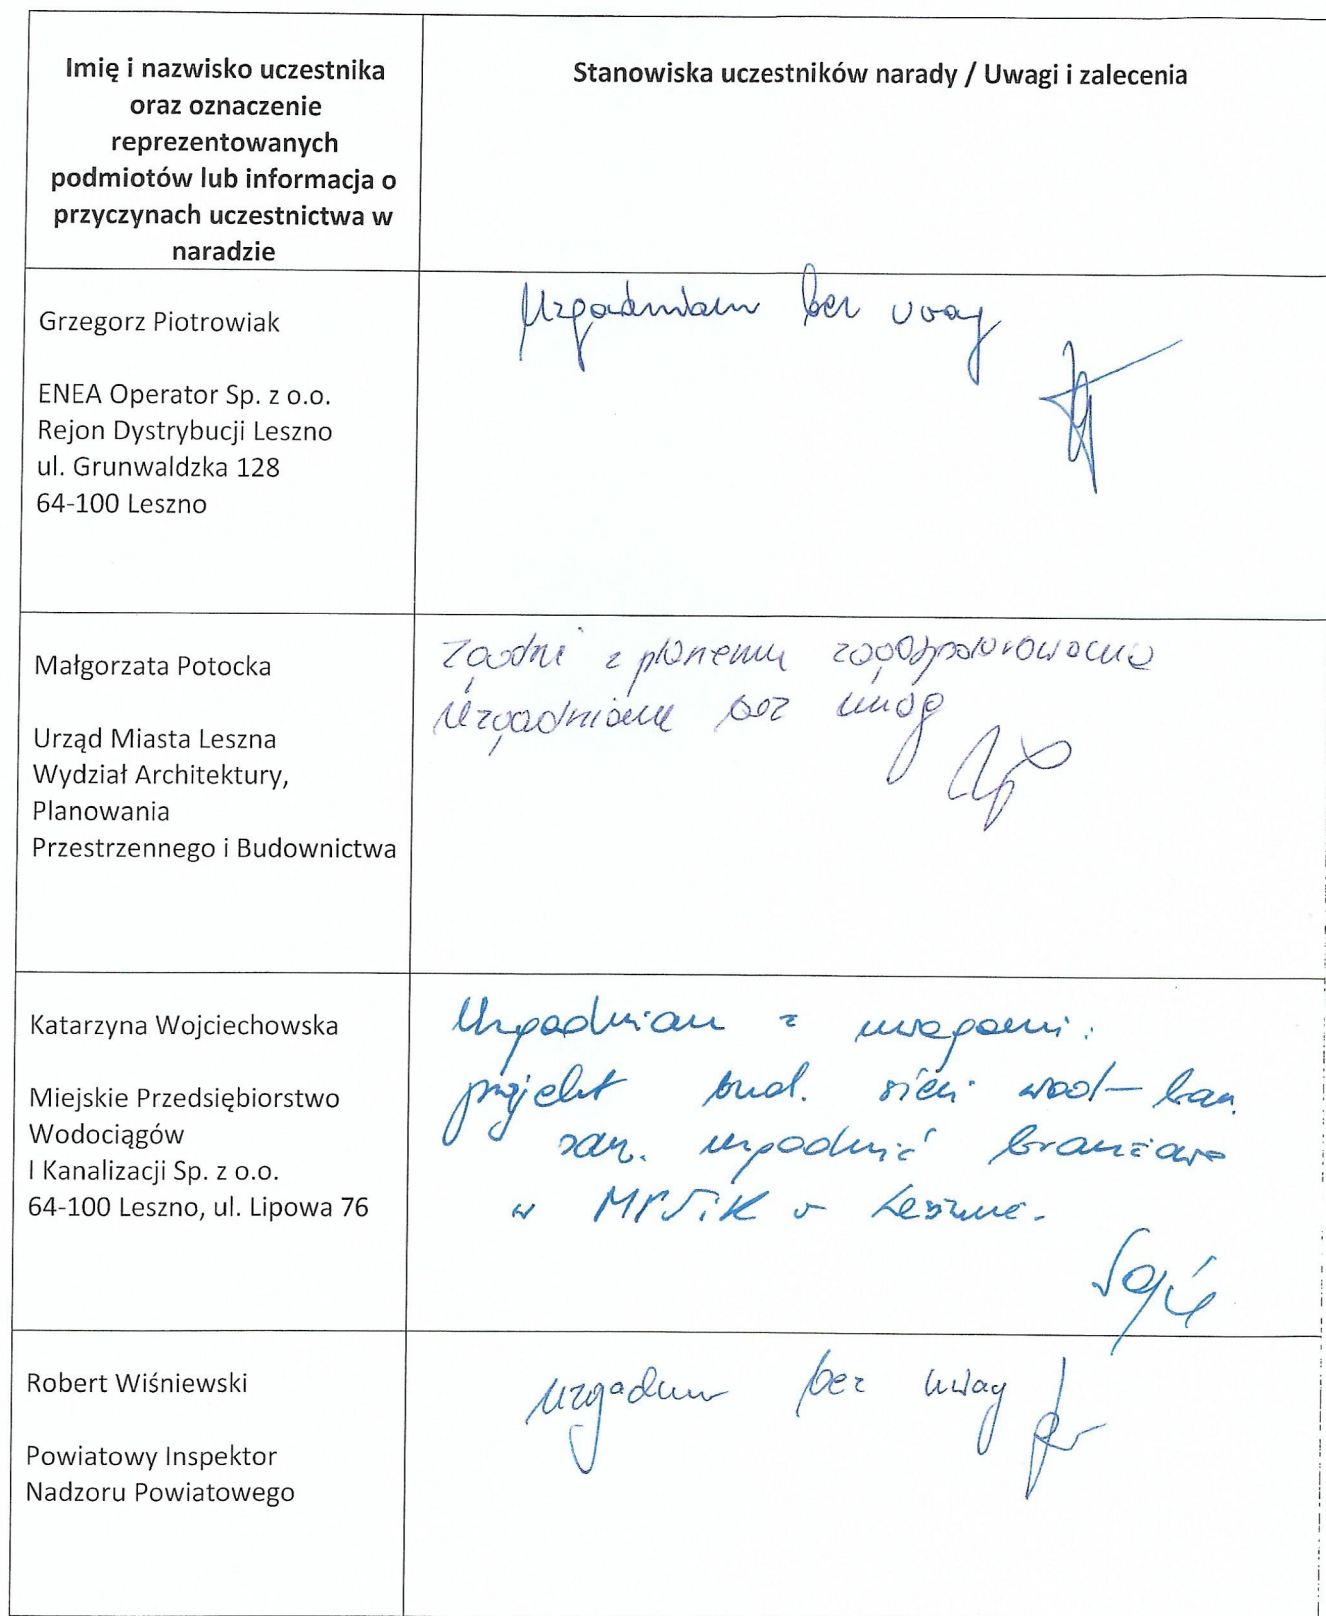 Imię i nazwisko uczestnika
oraz oznaczenie
reprezentowanych
podmiotów lub informacja o
przyczynach uczestnictwa w
naradzie
Stanowiska uczestników narady / Uwagi i zalecenia
Grzegorz Piotrowiak
ENEA Operator Sp. z o.o.
Rejon Dystrybucji Leszno
ul. Grunwaldzka 128
64-100 Leszno
Uzgadniam bez uwag
Małgorzata Potocka
Urząd Miasta Leszna
Wydział Architektury,
Planowania
Przestrzennego i Budownictwa
z planem zagospodarowania
bez uwag
Katarzyna Wojciechowska
Miejskie Przedsiębiorstwo
Wodociągów
I Kanalizacji Sp. z o.o.
64-100 Leszno, ul. Lipowa 76
Uzgadniam z uwagami:
projekt bud. sieci wod-kan.
san. uzgodnić branżowo
w MPWiK w Lesznie.
Robert Wiśniewski
Powiatowy Inspektor
Nadzoru Powiatowego
uzgadniam bez uwag